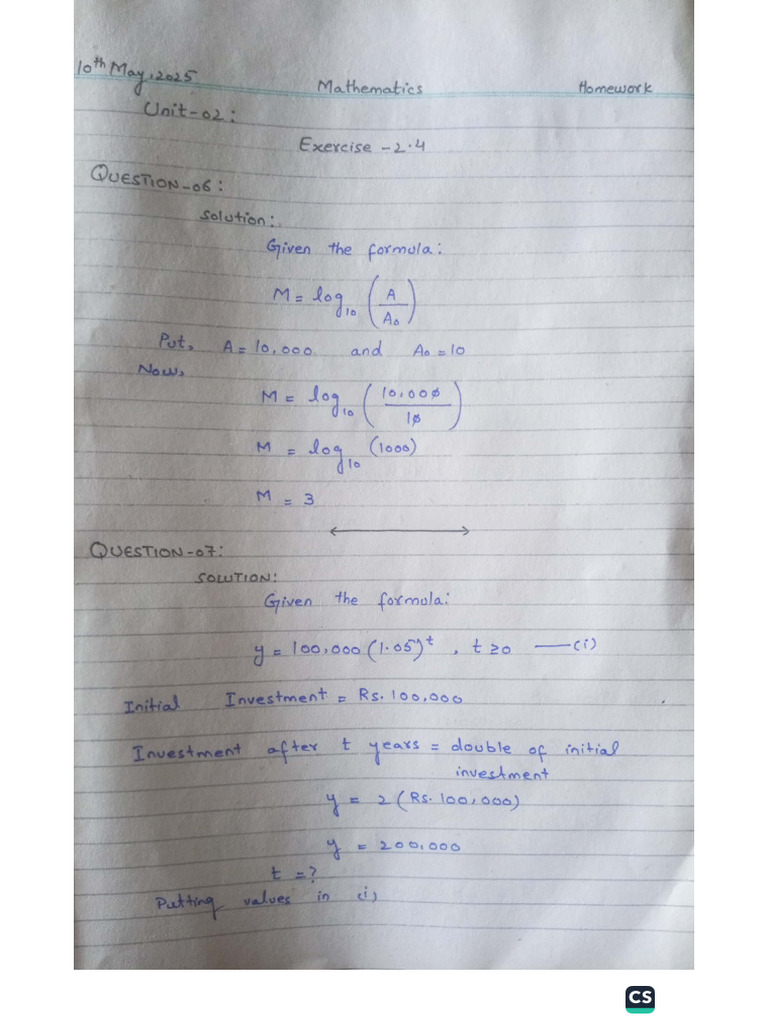 10th May, 2025 Mathematics Homework
Unit-02:
Exercise - 2.4
QUESTION-06:
Solution:
Given the formula:
M = log10 (A/A0)
Put, A = 10,000 and A0 = 10
Now,
M = log10 (10,000/10)
M = log10 (1000)
M = 3
QUESTION-07:
SOLUTION:
Given the formula:
y = 100,000 (1.05)^t , t ≥ 0 — (i)
Initial Investment = Rs. 100,000
Investment after t years = double of initial
investment
y = 2 (Rs. 100,000)
y = 200,000
t = ?
Putting values in (i)
CS